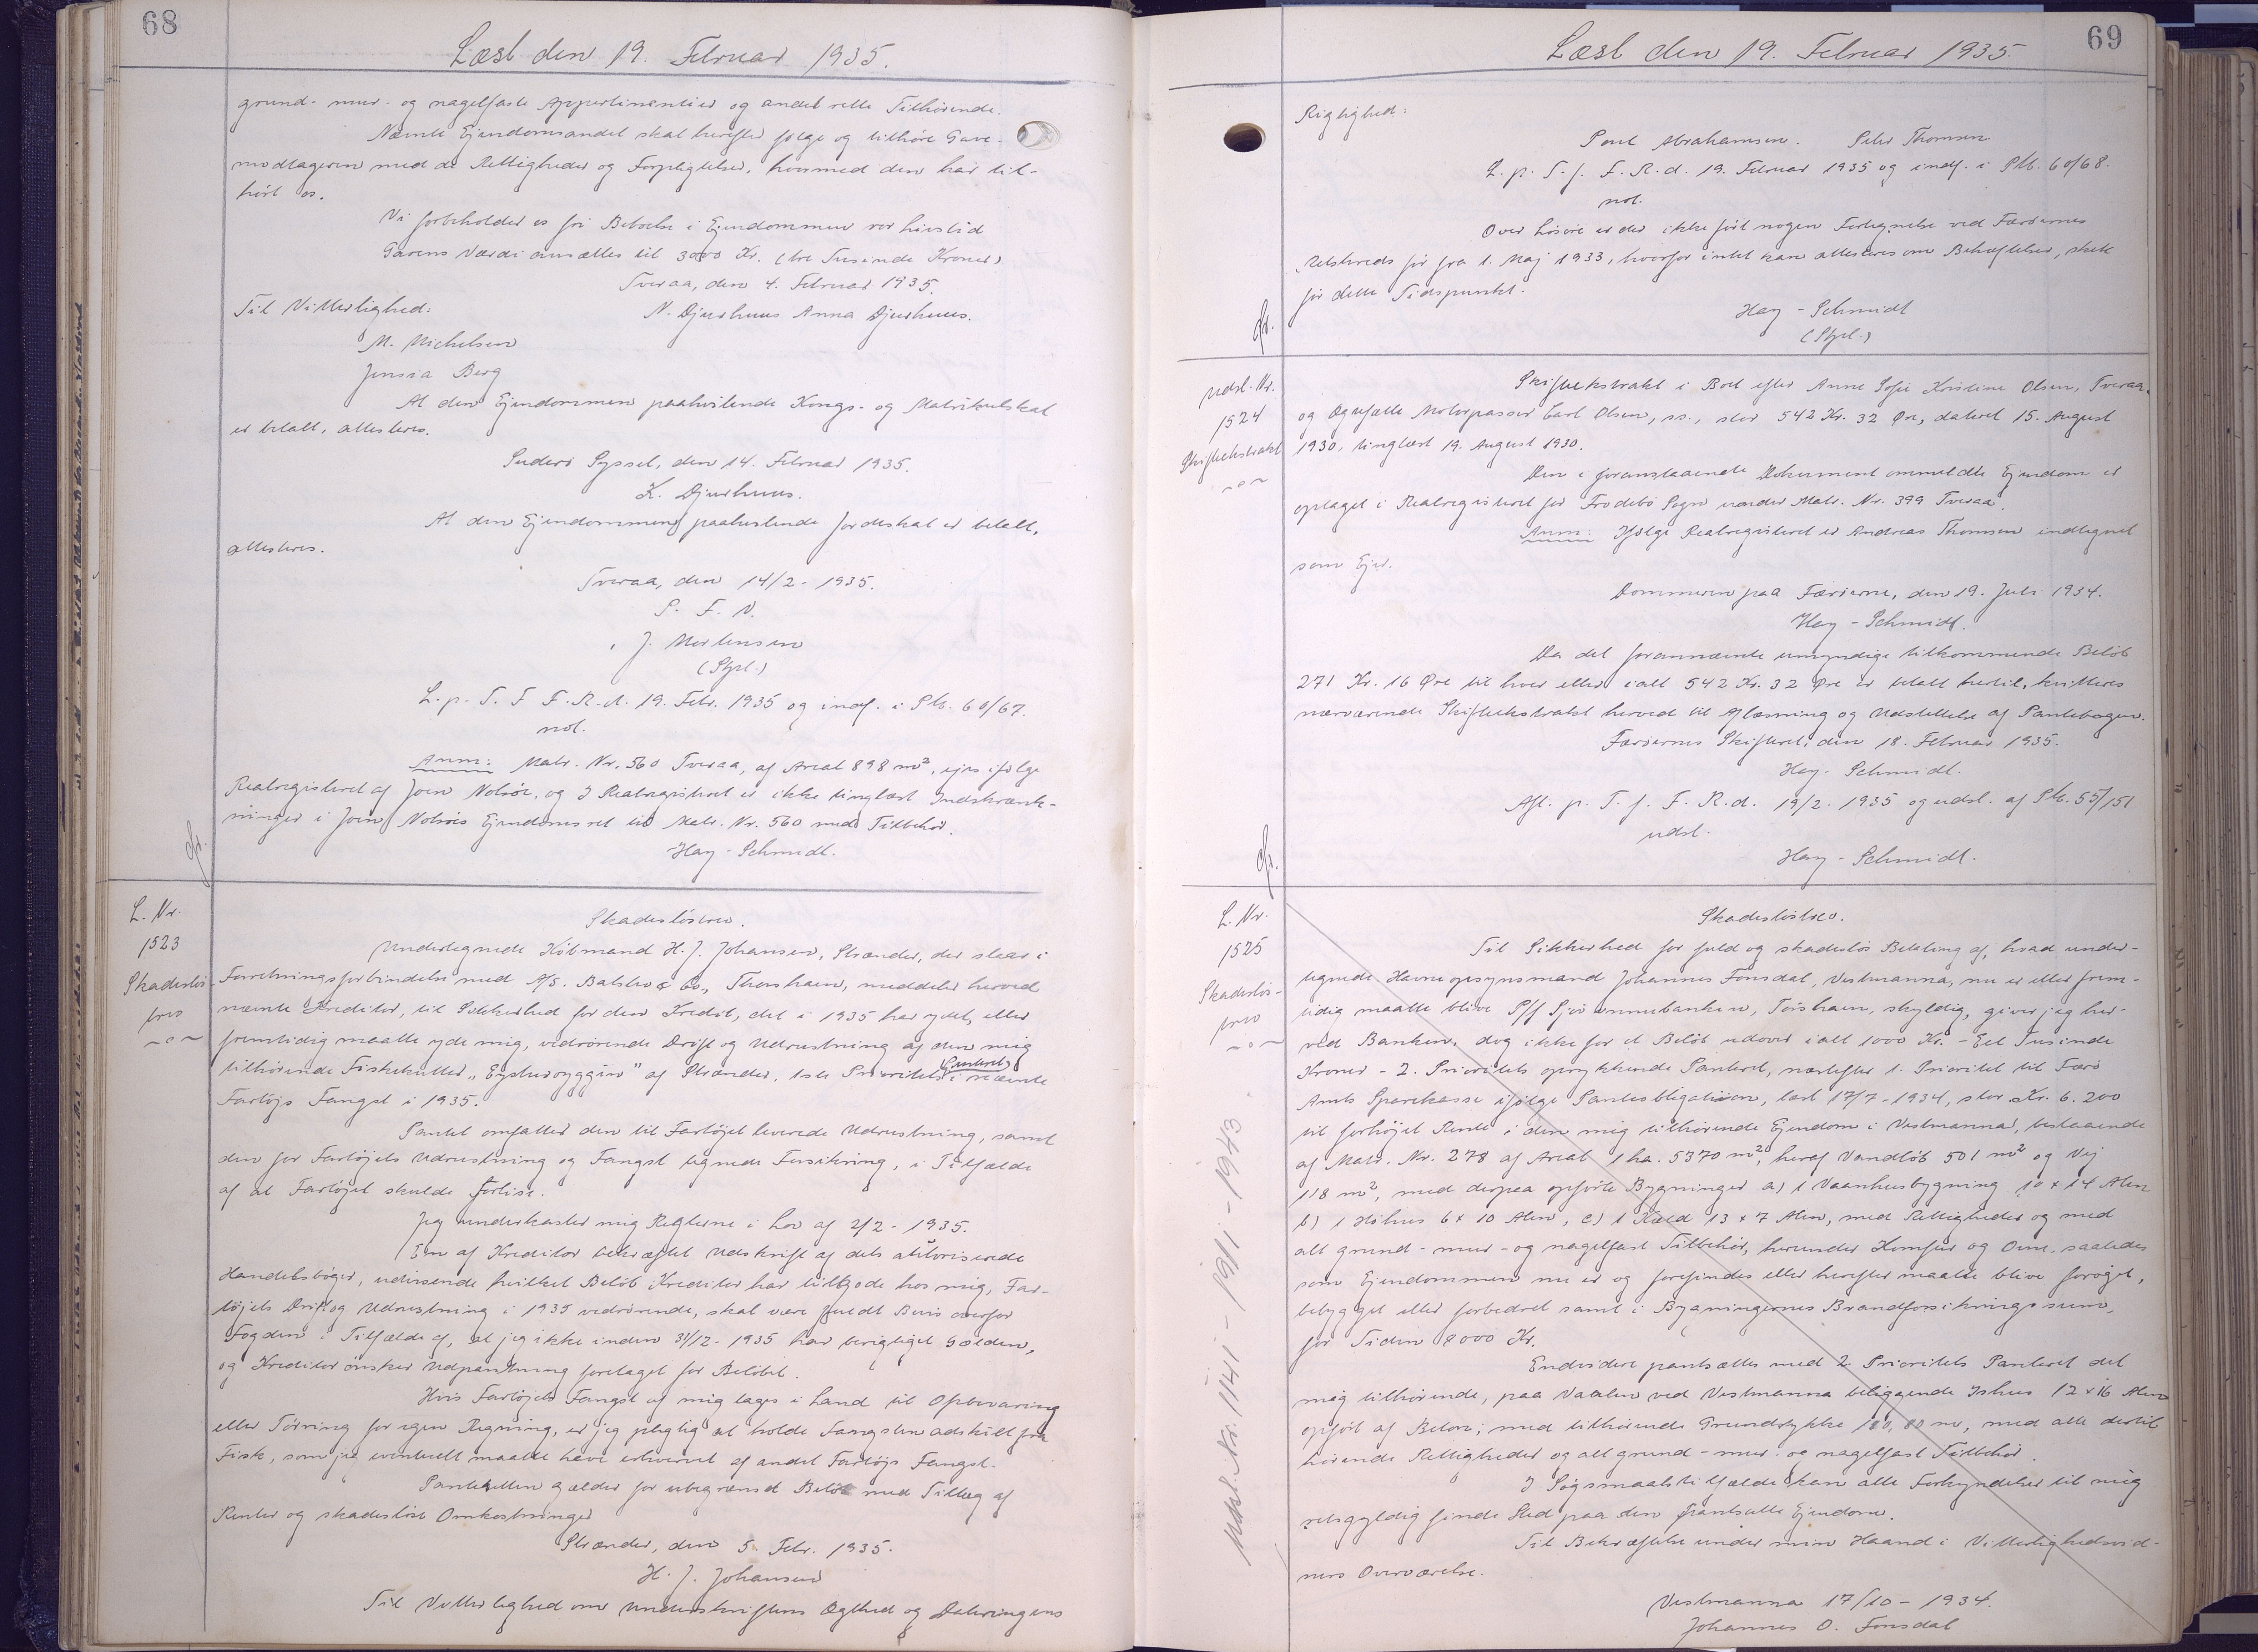 68
Læst den 19. Februar 1935.
grund- mur- og nagelfaste Appertinentier og andet rette Tilhørende.
Nævnte Ejendomsandel skal herefter følge og tilhøre Gave-
modtageren med de Rettigheder og Forpligtelser, hvormed den har til-
hørt os.
Vi forbeholder os fri Beboelse i Ejendommen vor livstid
Gavens Værdi ansættes til 3000 Kr. (tre Tusinde Kroner)
Tveraa, den 4. Februar 1935.
Til Vitterlighed:
N. Djurhuus Anna Djurhuus.
M. Michelsen
Jensia Berg
At den Ejendommen paahvilende Kongs- og Matrikulskat
er betalt, attesteres.
Suderø Syssel, den 14. Februar 1935.
K. Djurhuus.
At den Ejendommen paahvilende Jordeskat er betalt,
attesteres.
Tveraa, den 14/2 - 1935.
P. F. V.
J. Mortensen
(Stpl.)
L. p. T. f. F. R. d. 19. Febr. 1935 og indf. i Ptb. 60/67.
not.
Anm: Matr. Nr. 560 Tveraa, af Areal 898 m², ejes ifølge
Realregistret af Joen Nolsöe, og I Realregistret er ikke tinglæst Indskrænk-
ninger i Joen Nolsöes Ejendomsret til Matr. Nr. 560 med Tilbehør.
Hay-Schmidt.
L. Nr.
1523
Skadesløs-
brev
Skadesløsbrev.
Undertegnede Købmand H. J. Johansen, Strænder, der staar i
Forretningsforbindelse med A/S. Balslev & Co., Thorshavn, meddeler herved
nævnte Kreditor, til Sikkerhed for den Kredit, det i 1935 har ydet, eller
fremtidig maatte yde mig, vedrørende Drift og Udrustning af den mig
tilhørende Fiskekutter „Eysturoyggin" af Strænder, 1ste Prioritets Panteret i nævnte
Fartøjs Fangst i 1935.
Pantet omfatter den til Fartøjet leverede Udrustning, samt
den for Fartøjets Udrustning og Fangst tegnede Forsikring, i Tilfælde
af at Fartøjet skulde forlise.
Jeg underkaster mig Reglerne i Lov af 2/2 - 1935.
En af Kreditor bekræftet Udskrift af dets autoriserede
Handelsbøger, udvisende hvilket Beløb Kreditor har tilgode hos mig, Far-
tøjets Drift og Udrustning i 1935 vedrørende, skal være fuldt Bevis overfor
Fogden i Tilfælde af, at jeg ikke inden 31/12 - 1935 har berigtiget Gælden,
og Kreditor ønsker Udpantning foretaget for Beløbet.
Hvis Fartøjets Fangst af mig tages i Land til Opbevaring
eller Tørring for egen Regning, er jeg pligtig at holde Fangsten adskilt fra
Fisk, som jeg eventuelt maatte have erhvervet af andet Fartøjs Fangst.
Panteretten gælder for ubegrænset Beløb med Tillæg af
Renter og skadesløse Omkostninger
Strænder, den 5. Febr. 1935.
H. J. Johansen
Til Vitterlighed om Underskriftens Ægthed og Dateringens
69
Læst den 19. Februar 1935.
Rigtighed:
Poul Abrahamsen. Peter Thomsen
L. p. T. f. F. R. d. 19. Februar 1935 og indf. i Ptb. 60/68.
not.
Over Løsøre er der ikke ført nogen Fortegnelse ved Færøernes
Retskreds før fra 1. Maj 1933, hvorfor intet kan attesteres om Behæftelser, skete
før dette Tidspunkt.
Hay-Schmidt
(Stpl.)
Udsl. Nr.
1524
Skifteekstrakt
Skifteekstrakt i Boet efter Anne Sofie Kristine Olsen, Tveraa,
og Ægtefælle Motorpasser Carl Olsen, ss., stor 542 Kr. 32 Øre, dateret 15. August
1930, tinglæst 19. August 1930.
Den i foranstaaende Dokument ommeldte Ejendom er
optaget i Realregistret for Frodebø Sogn under Matr. Nr. 399 Tveraa.
Anm: Ifølge Realregistret er Andreas Thomsen indtegnet
som Ejer.
Dommeren paa Færøerne, den 19. Juli 1934.
Hay-Schmidt.
Da det forannævnte umyndige tilkommende Beløb
271 Kr. 16 Øre til hver eller ialt 542 Kr. 32 Øre er betalt hertil, kvitteres
nærværende Skifteekstrakt herved til Aflæsning og Udslettelse af Pantebogen.
Færøernes Skifteret, den 18. Februar 1935.
Hay-Schmidt.
Afl. p. T. f. F. R. d. 19/2. 1935 og udsl. af Ptb. 55/151
udsl.
Hay-Schmidt.
L. Nr.
1525
Skadesløs-
brev
Udsl. Nr. 1141 - 19/1 - 1943.
Skadesløsbrev.
Til Sikkerhed for fuld og skadesløs Betaling af, hvad under-
tegnede Havneopsynsmand Johannes Fonsdal, Vestmanna, nu er eller frem-
tidig maatte blive P/f Sjóvinnubankin, Tórshavn, skyldig, giver jeg her-
ved Banken, dog ikke for et Beløb udover ialt 1000 Kr. - Eet Tusinde
Kroner - 2. Prioritets oprykkende Panteret, næstefter 1. Prioritet til Færø
Amts Sparekasse ifølge Panteobligation, læst 17/7 - 1934, stor Kr. 6.200
til forhøjet Rente i den mig tilhørende Ejendom i Vestmanna, bestaaende
af Matr. Nr. 278 af Areal 1 ha. 5370 m², heraf Vandløb 501 m² og Vej
118 m², med derpaa opførte Bygninger a) 1 Vaaningshusbygning 10 x 14 Alen
b) 1 Höhus 6 x 10 Alen, c) 1 Kæld 13 x 7 Alen, med Rettigheder og med
alt grund- mur- og nagelfast Tilbehør, herunder Komfur og Ovne, saaledes
som Ejendommen nu er og forefindes eller herefter maatte blive forøget,
bebygget eller forbedret samt i Bygningernes Brandforsikringssum,
for Tiden 8000 Kr.
Endvidere pantsættes med 2. Prioritets Panteret det
mig tilhørende, paa Vaalen ved Vestmanna beliggende Ishus 12 x 16 Alen
opført af Beton, med tilhørende Grundstykke 180,80 m², med alle dertil
hørende Rettigheder og alt grund- mur- og nagelfast Tilbehør.
I Søgsmaalstilfælde kan alle Forkyndelser til mig
retsgyldig finde Sted paa den pantsatte Ejendom.
Til Bekræftelse under min Haand i Vitterlighedsvid-
ners Overværelse.
Vestmanna 17/10 - 1934.
Johannes O. Fonsdal